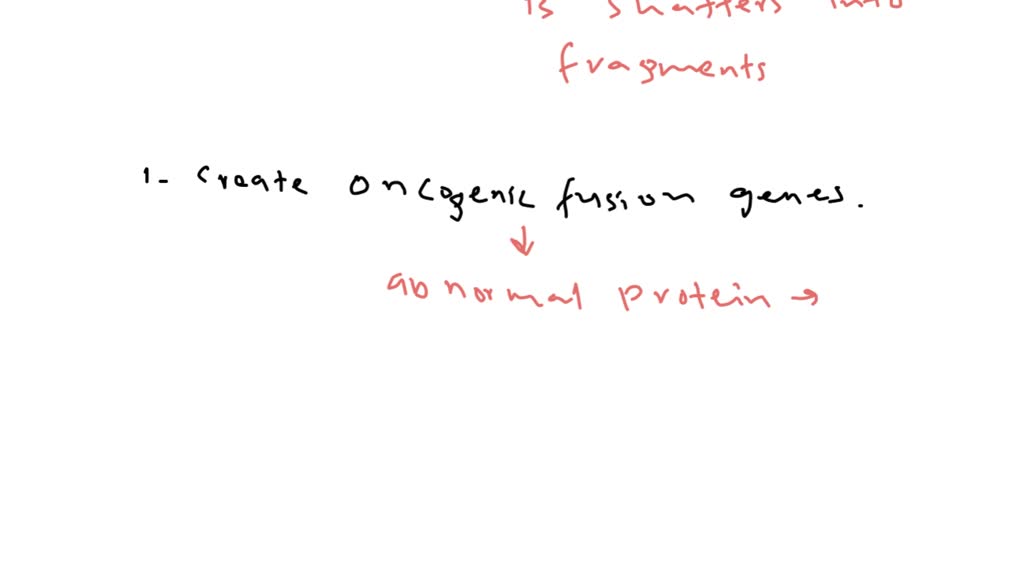 is shatters into
fragments
1- create oncogenic fusion genes.
↓
abnormal protein →